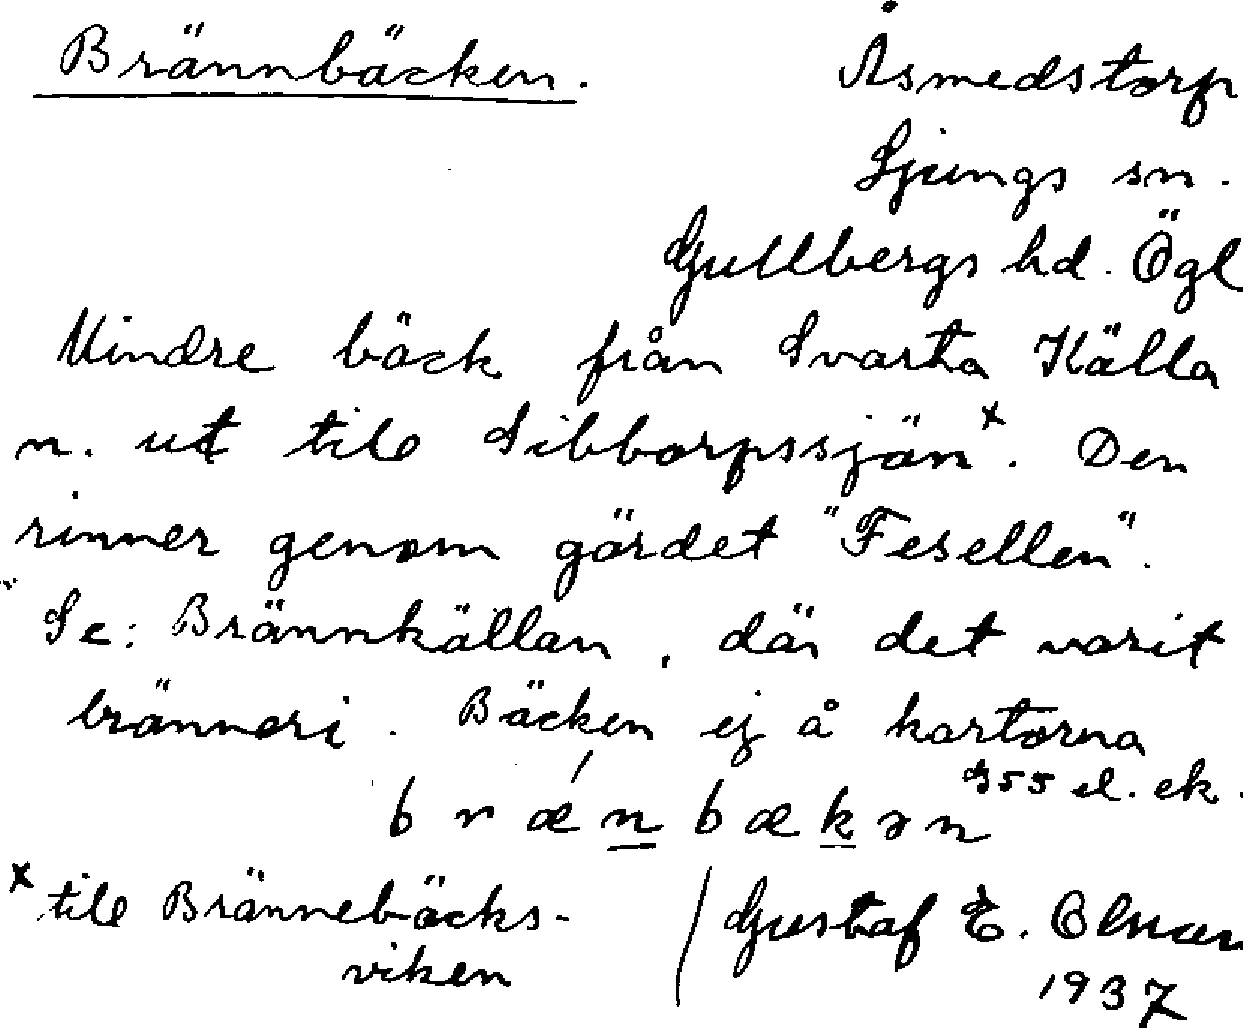 Brännbäcken.
Åsmedstorp
Ljungs sn.
Gullbergs hd. Ögl
Mindre bäck från Svarta Källa
n. ut till Sibborpssjön x. Den
rinner genom gärdet "Fesellen".
Se: Brännkällan, där det varit
bränneri. Bäcken ej å kartorna
G55 el. ek.
brǽnbækən
x till Brännebäcks-
viken
/ Gustaf E.
1937